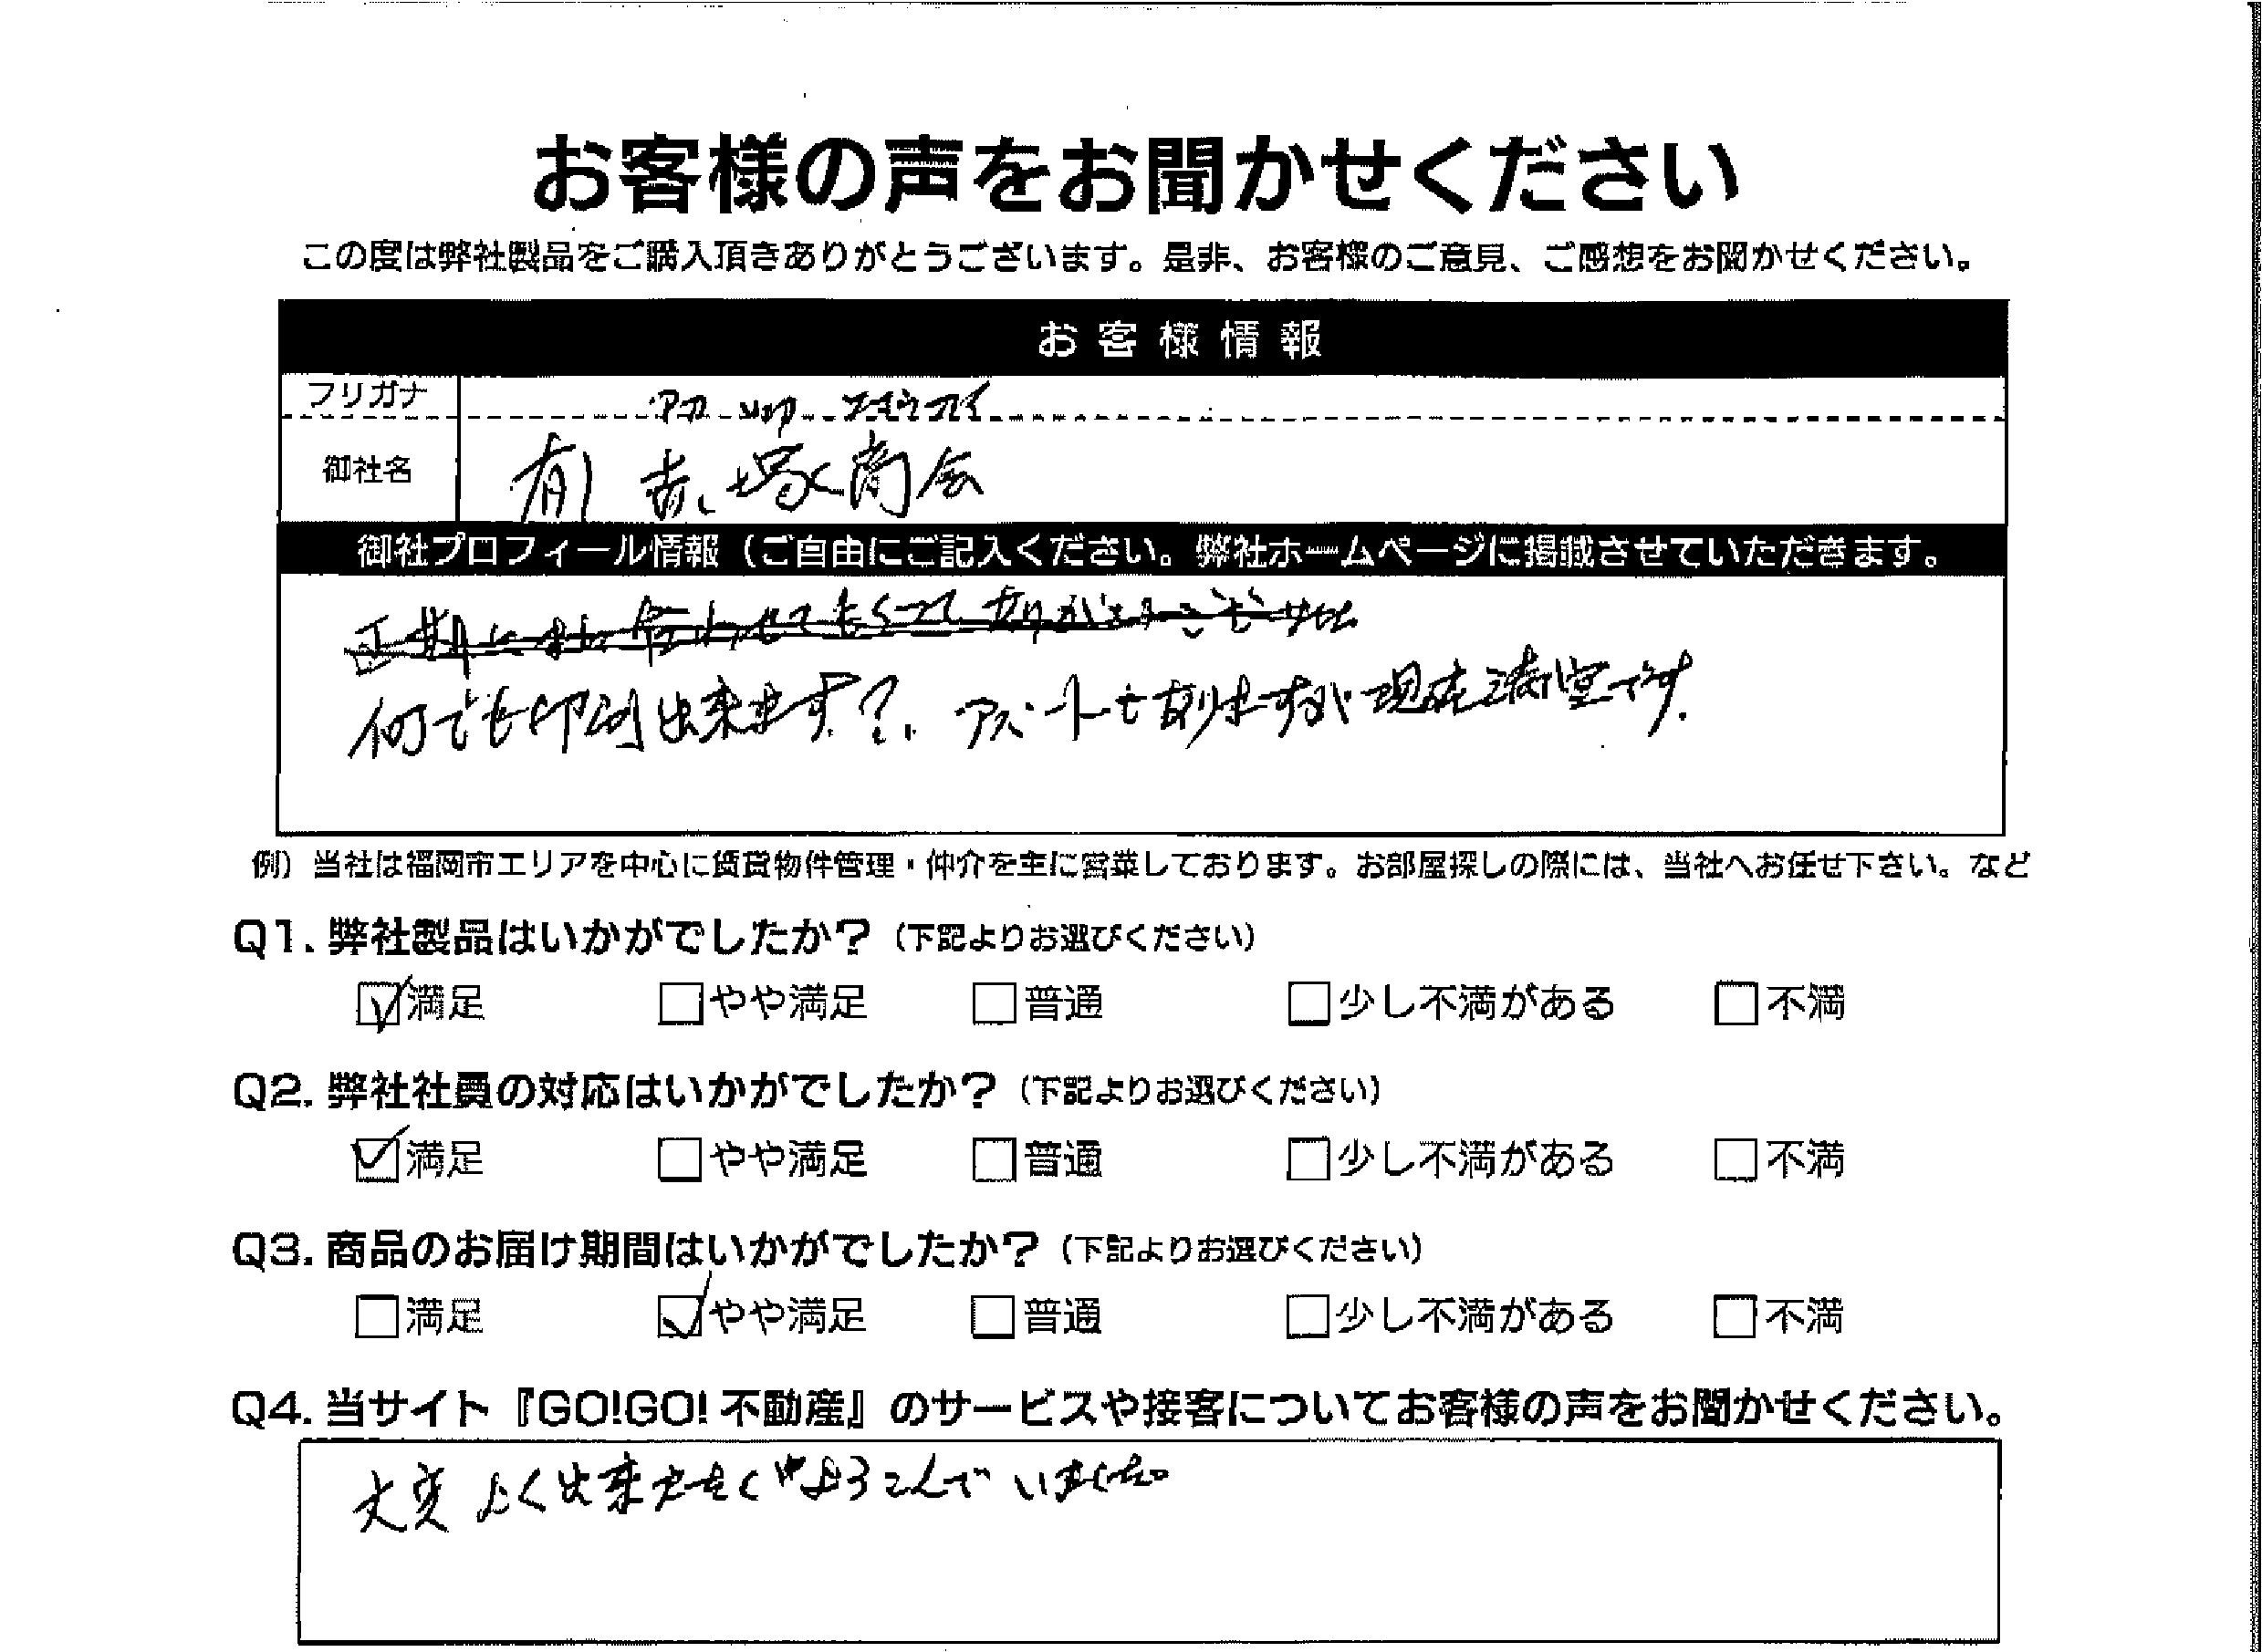 お客様の声をお聞かせください
この度は弊社製品をご購入頂きありがとうございます。是非、お客様のご意見、ご感想をお聞かせください。
お客様情報
フリガナ アカ ツカ ショウカイ
御社名 有) 赤塚商会
御社プロフィール情報（ご自由にご記入ください。弊社ホームページに掲載させていただきます。
期に 合わせてもらって ありがとうございました
何でも印刷出来ます?. アパートも有りますが現在満室です.
例）当社は福岡市エリアを中心に賃貸物件管理・仲介を主に営業しております。お部屋探しの際には、当社へお任せ下さい。など
Q1. 弊社製品はいかがでしたか？（下記よりお選びください）
☑満足 □やや満足 □普通 □少し不満がある □不満
Q2. 弊社社員の対応はいかがでしたか？（下記よりお選びください）
☑満足 □やや満足 □普通 □少し不満がある □不満
Q3. 商品のお届け期間はいかがでしたか？（下記よりお選びください）
□満足 ☑やや満足 □普通 □少し不満がある □不満
Q4. 当サイト『GO!GO! 不動産』のサービスや接客についてお客様の声をお聞かせください。
大変 よく出来 よろこんで いました。